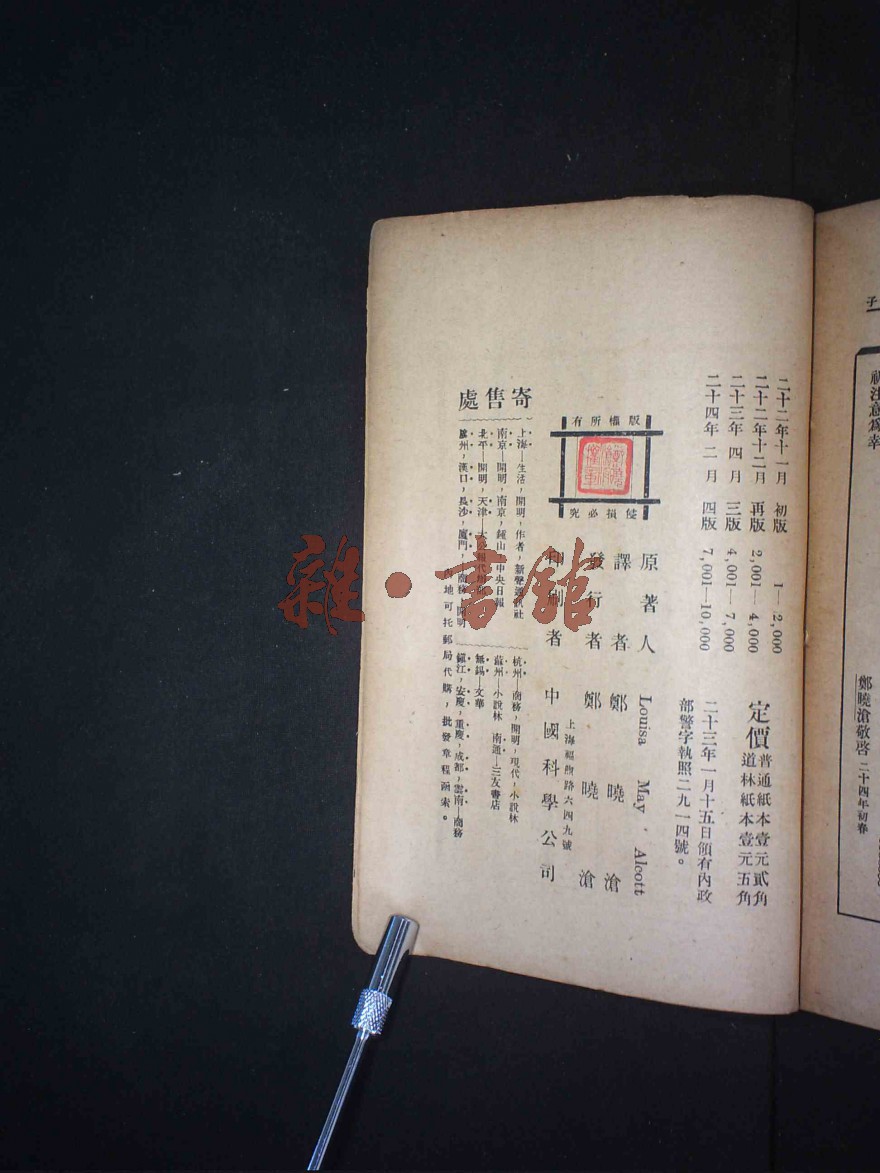 二十二年十一月　初版　1—2,000
二十二年十二月　再版　2,001—4,000
二十三年　四月　三版　4,001—7,000
二十四年　二月　四版　7,001—10,000
定價
普通紙本壹元貳角
道林紙本壹元五角
二十三年一月十五日領有內政
部警字執照二九一四號。
版權所有
侵損必究
原著人　Louisa May Alcott
譯者　鄭曉滄
發行者　鄭曉滄
印刷者　中國科學公司
上海福煦路六四九號
寄售處
上海—生活，開明，作者，新聲通訊社
南京—開明，南京，鍾山，中央日報
北平—開明，天津—大
廣州，漢口，長沙，廈門，商務，開明
杭州—商務，開明，現代，小說林
蘇州—小說林　南通—三友書店
無錫—文華
鎮江，安慶，重慶，成都，雲南—商務
地可托郵局代購，批發章程函索。
雜·書館
子
注意為幸
鄭曉滄敬啓　二十四年初春